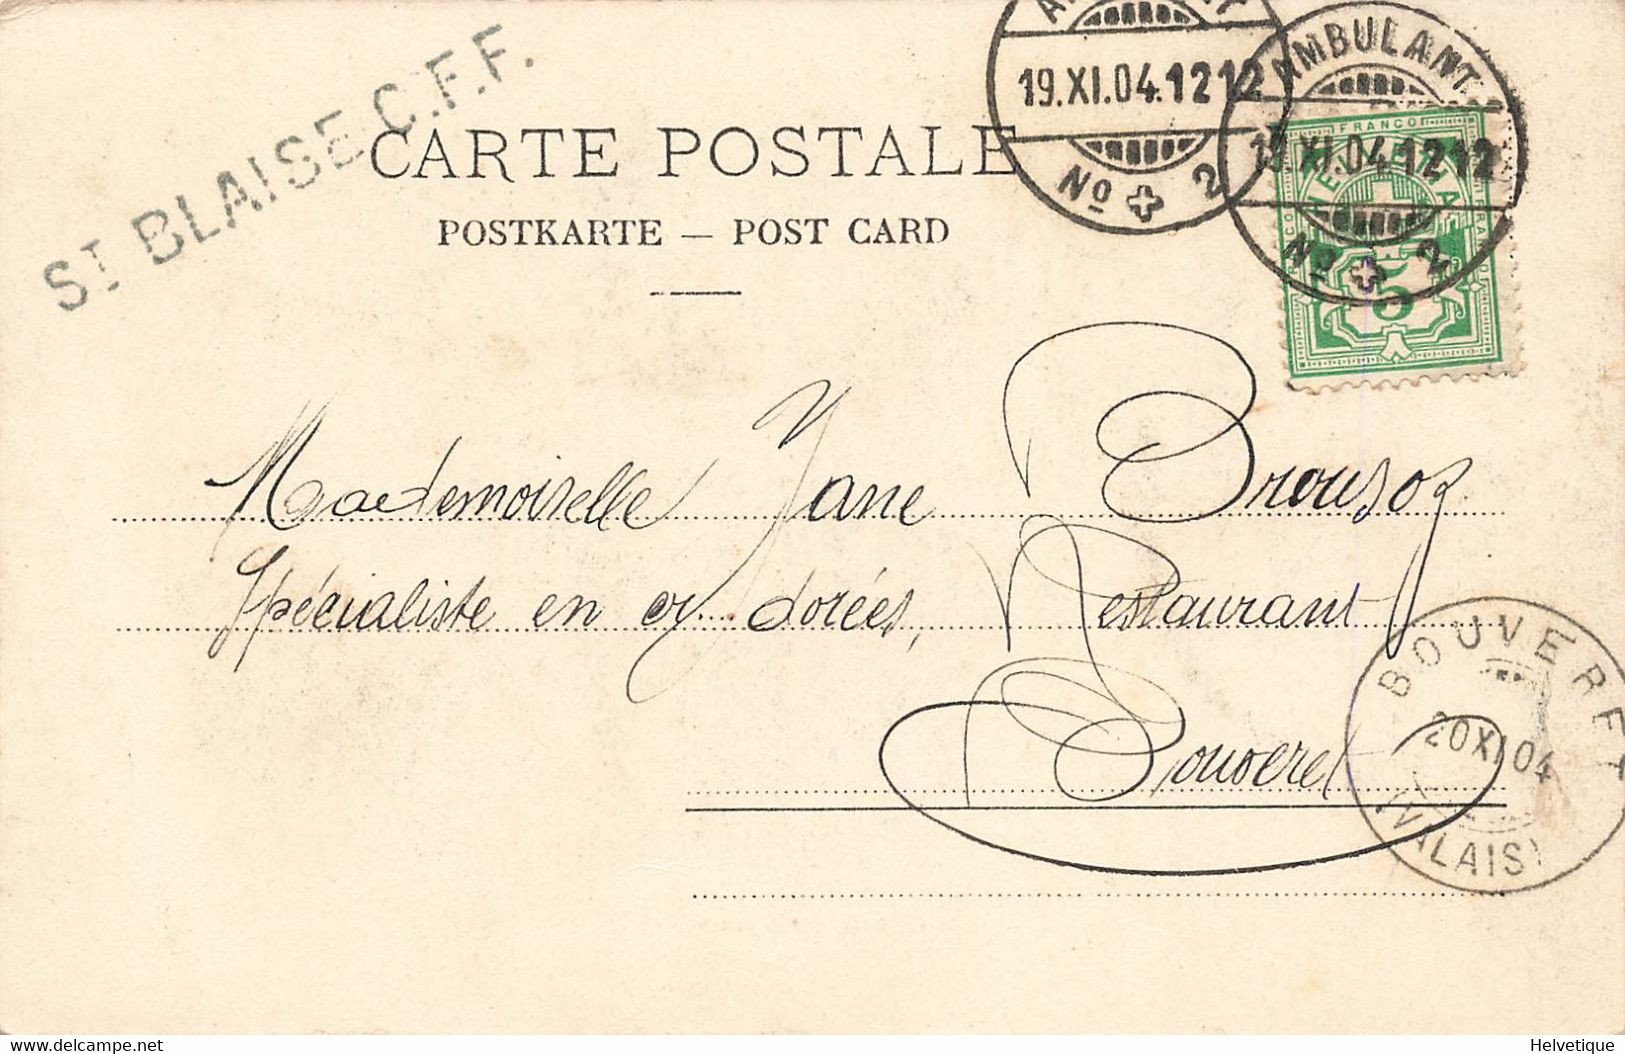 St BLAISE C.F.F.
CARTE POSTALE
POSTKARTE — POST CARD
19.XI.04.1212
No 2
AMBULANT
19.XI.04.1212
No 2
FRANCO
HELVETIA
FRANCO
FRANCO
5
Mademoiselle Jane Brousoz
Spécialiste en dorées, Restaurant
Bouveret
BOUVERET
20 XI 04
(VALAIS)
Helvetique